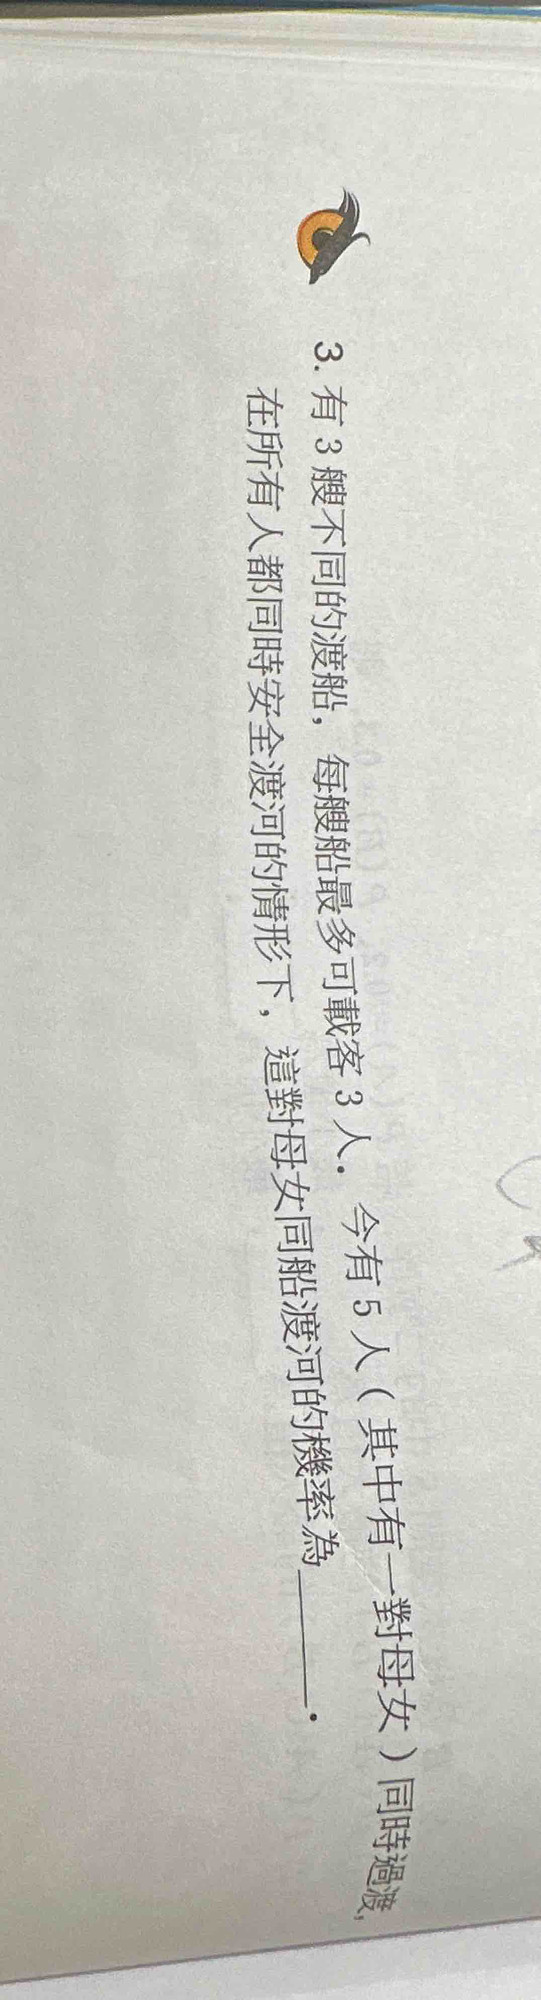 3. 有 3 艘不同的渡船，每艘船最多可載客 3 人．今有 5 人（其中有一對母女）同時過渡，
在所有人都同時安全渡河的情形下，這對母女同船渡河的機率為______．